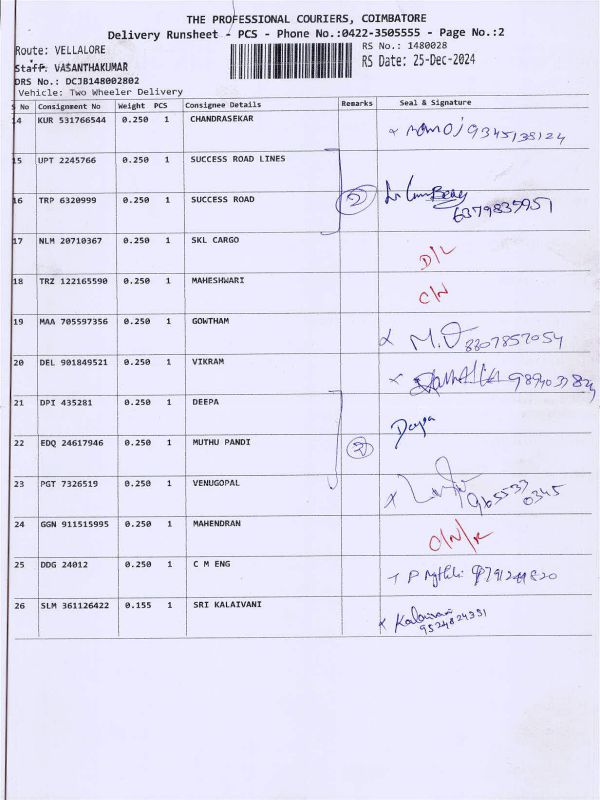 THE PROFESSIONAL COURIERS, COIMBATORE
Delivery Runsheet - PCS - Phone No.:0422-3505555 - Page No.:2
Route: VELLALORE
RS No.: 1480028
Staff: VASANTHAKUMAR
RS Date: 25-Dec-2024
DRS No.: DCJB148002802
Vehicle: Two Wheeler Delivery
S No Consignment No Weight PCS Consignee Details Remarks Seal & Signature
14 KUR 531766544 0.250 1 CHANDRASEKAR
15 UPT 2245766 0.250 1 SUCCESS ROAD LINES
16 TRP 6320999 0.250 1 SUCCESS ROAD 2
17 NLM 20710367 0.250 1 SKL CARGO D/L
18 TRZ 122165590 0.250 1 MAHESHWARI C/N
19 MAA 705597356 0.250 1 GOWTHAM 8807857054
20 DEL 901849521 0.250 1 VIKRAM
21 DPI 435281 0.250 1 DEEPA Deepa
22 EDQ 24617946 0.250 1 MUTHU PANDI 2
23 PGT 7326519 0.250 1 VENUGOPAL 965533 0345
24 GGN 911515995 0.250 1 MAHENDRAN
25 DDG 24012 0.250 1 C M ENG
26 SLM 361126422 0.155 1 SRI KALAIVANI Kalaivani
9524824351